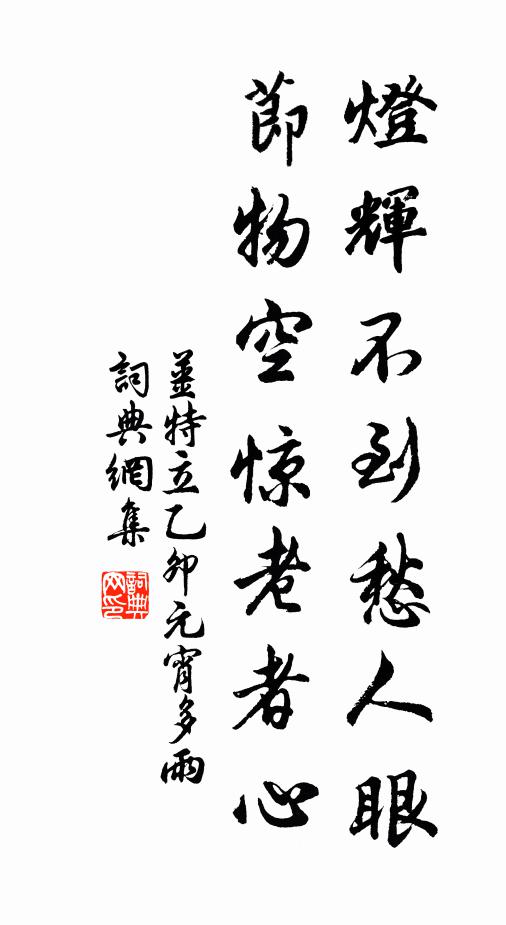 燈輝不到愁人眼
節物空惊老者心
薑特立乙卯元宵多雨
詞典網集
詞典网印